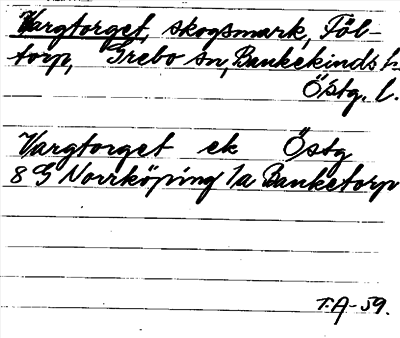 Vargtorget, skogsmark, Föl-
torp, Grebo sn, Bankekinds h.
Östg. l.
Vargtorget ek Östg
8 G Norrköping 1a Banketorp
T.A-59.